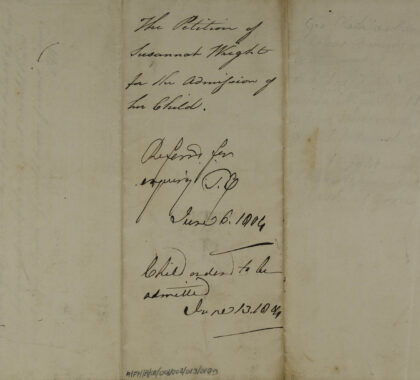 The Petition of
Susannah Wright
for the Admission of
her Child.
Referred for
enquiry
June 6. 1804
Child ordered to be
admitted
June 13. 1804